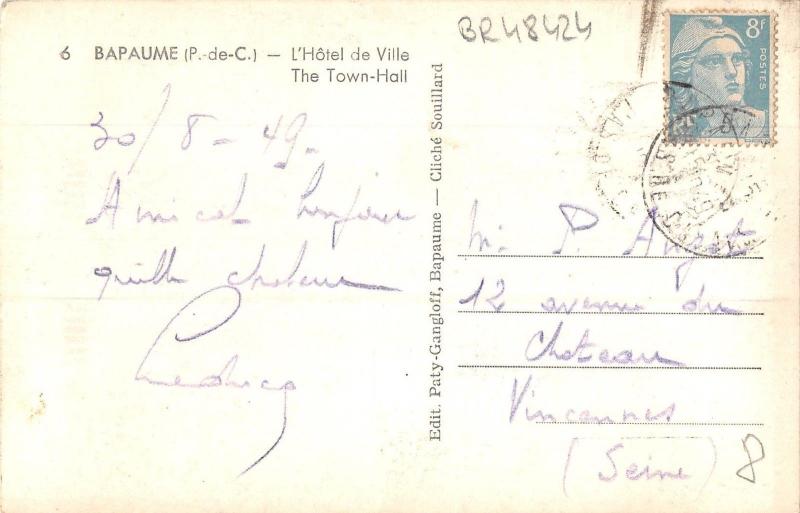 BR48424
6 BAPAUME (P.-de-C.) — L'Hôtel de Ville
The Town-Hall
8F
POSTES
30/8-49-
Amical bonjour
quille
Edit. Paty-Gangloff, Bapaume — Cliché Souillard
M. P.
12 avenue du
Chateau
Vincennes
(Seine)
8